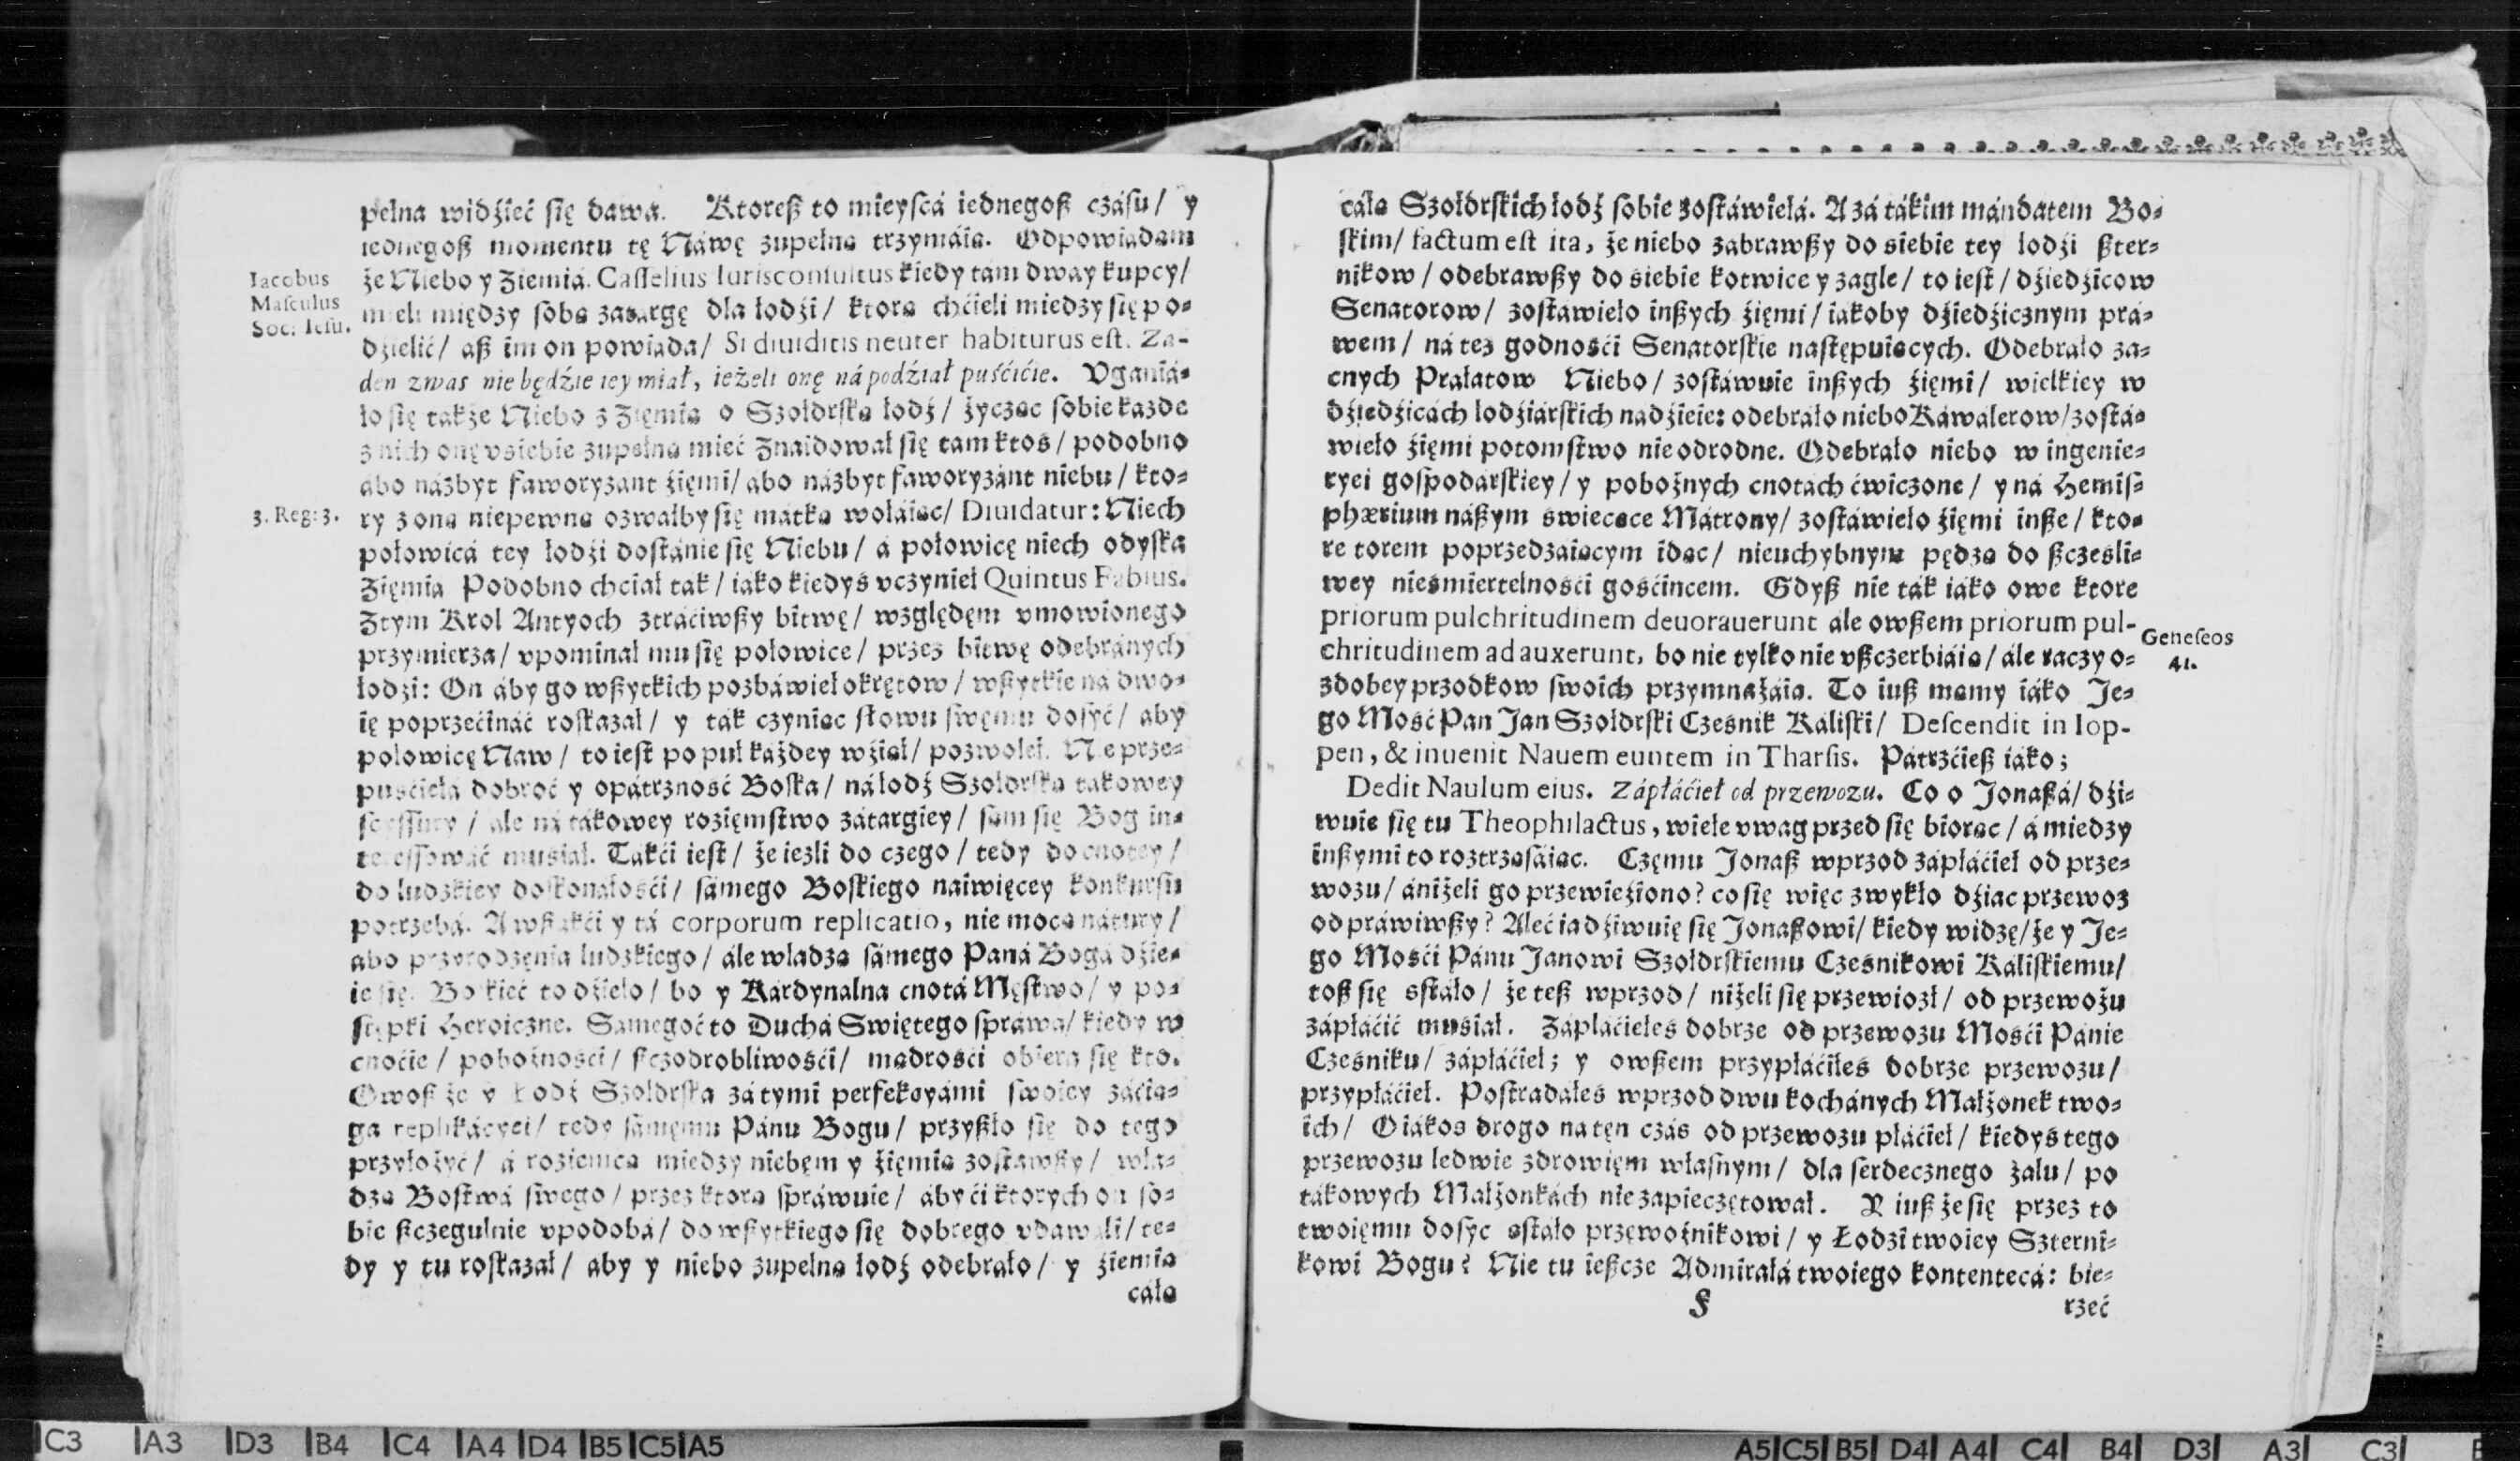 pełna widźieć się dawa. Ktoreß to mieyscá iednegoß czásu/ y
iednegoß momentu tę Náwę zupełna trzymáia. Odpowiadam
że Niebo y Ziemiá. Casselius Iurisconsultus kiedy tám dway kupcy/
Iacobus
Masculus
Soc: Iesu.
mieli między soba zatargę dla łodźi/ ktora chćieli miedzy się po-
dźielić/ aß im on powiada/ Si diuiditis neuter habiturus est. Za-
den zwas nie będźie iey miał, ieżeli onę ná podźiał puśćićie. Vganiá-
ło się także Niebo z Zięmia o Szołdrska łodź/ życzac sobie każde
z nich onę vsiebie zupełna mieć Znaidował się tam ktos/ podobno
abo názbyt faworyzant źięmi/ abo názbyt faworyzánt niebu/ kto-
3. Reg: 3.
ry z ona niepewna ozwałby się matka wołáiac/ Diuidatur: Niech
połowicá tey łodźi dostánie się Niebu/ á połowicę niech odyska
Zięmia Podobno chciał tak/ iáko kiedyś vczynieł Quintus Fabius.
Ztym Krol Antyoch ztráciwßy bitwę/ względęm vmowionego
przymierza/ vpominał mu się połowice/ przez bitwę odebránych
łodzi: On áby go wßytkich pozbáwieł okrętow/ wßytkie ná dwo-
ię poprzećináć roskazał/ y ták czyniac słowu swęmu dosyć/ aby
połowicę Naw/ to iest po puł każdey wźiął/ pozwoleł. Nie prze-
puśćieła dobroć y opátrzność Boska/ ná łodź Szołdrska takowey
scyssury/ ale ná tákowey rozięmstwo zátargiey/ sam się Bog in-
teressowáć musiał. Tákći iest/ że iezli do czego/ tedy do cnotey/
do ludzkiey doskonałośći/ sámego Boskiego naiwięcey konkursu
potrzebá. A wßakći y tá corporum replicatio, nie moca nátury/
abo przyrodzęnia ludzkiego/ ále władza sámego Paná Bogá dźie-
ie się. Bo kieć to dźieło/ bo y Kárdynalna cnotá Męstwo/ y po-
stępki Heroiczne. Samegoć to Duchá Swiętego spráwa/ kiedy w
cnoćie/ pobożnośći/ ßczodrobliwośći/ madrośći obiera się kto.
Owoß że y Łodź Szołdrska zá tymi perfekcyámi swoiey záćia-
ga replikácyei/ tedy sámęmu Pánu Bogu/ przyßło się do tego
przyłożyć/ á roziemca miedzy niebęm y źięmia zostawßy/ wła-
dza Bostwá swego/ przez ktora spráwuie/ áby ći ktorych on so-
bie ßczegulnie vpodobá/ do wßytkiego się dobrego vdawali/ te-
dy y tu roskazał/ aby y niebo zupełna łodź odebrało/ y źiemia
cáła
cáła Szołdrskich łodź sobie zostáwiełá. A zá tákim mándatem Bo-
skim/ factum est ita, że niebo zabrawßy do siebie tey łodźi ßter-
nikow/ odebrawßy do siebie kotwice y zagle/ to iest/ dźiedźicow
Senatorow/ zostawieło inßych źięmi/ iákoby dźiedźicznym prá-
wem/ ná tez godnośći Senatorskie następuiacych. Odebrało za-
cnych Prałatow Niebo/ zostáwuie inßych źięmi/ wielkiey w
dźiedźicách łodźiárskich nadźieie: odebráło niebo Káwalerow/ zostá-
wieło źięmi potomstwo nieodrodne. Odebráło niebo w ingenie-
ryei gospodárskiey/ y pobożnych cnotách ćwiczone/ y ná Hemis-
phærium náßym swiecace Mátrony/ zostáwieło źięmi inße/ kto-
re torem poprzedzáiacym idac/ nieuchybnym pędza do ßczesli-
wey niesmiertelnośći gośćincem. Gdyß nie ták iáko owe ktore
priorum pulchritudinem deuorauerunt ale owßem priorum pul-
chritudinem adauxerunt, bo nie tylko nie vßczerbiáia/ ále raczy o-
Geneseos
41.
zdobey przodkow swoich przymnażáia. To iuß mamy iáko Je-
go Mość Pan Jan Szołdrski Czesnik Káliski/ Descendit in Iop-
pen, & inuenit Nauem euntem in Tharsis. Pátrzćieß iáko;
Dedit Naulum eius. Zápłáćieł od przewozu. Co o Jonaßá/ dźi-
wuie się tu Theophilactus, wiele vwag przed się biorac/ á miedzy
inßymi to roztrzasáiac. Częmu Jonaß wprzod zápłáćieł od prze-
wozu/ ániżeli go przewieźiono? co się więc zwykło dźiac przewoz
odpráwiwßy? Aleć ia dźiwuię się Jonaßowi/ kiedy widzę/ że y Je-
go Mośći Pánu Janowi Szołdrskiemu Czesnikowi Káliskiemu/
toß się sstáło/ że teß wprzod/ niżeli się przewiozł/ od przewożu
zápłáćić musiał. Zápłaćiełes dobrze od przewozu Mośći Pánie
Czesniku/ zápłáćieł; y owßem przypłáćiłes dobrze przewozu/
przypłáćieł. Postradałes wprzod dwu kochánych Małżonek two-
ich/ O iákos drogo na tęn czás od przewozu płáćieł/ kiedyś tego
przewozu ledwie zdrowięm własnym/ dla serdecznego żalu/ po
tákowych Małżonkách nie zapieczętował. Y iuß że się przez to
twoięmu dosyc sstáło przewoźnikowi/ y Łodzi twoiey Szterni-
kowi Bogu? Nie tu ießcze Admirałá twoiego kontentecá: bie-
F
rzeć